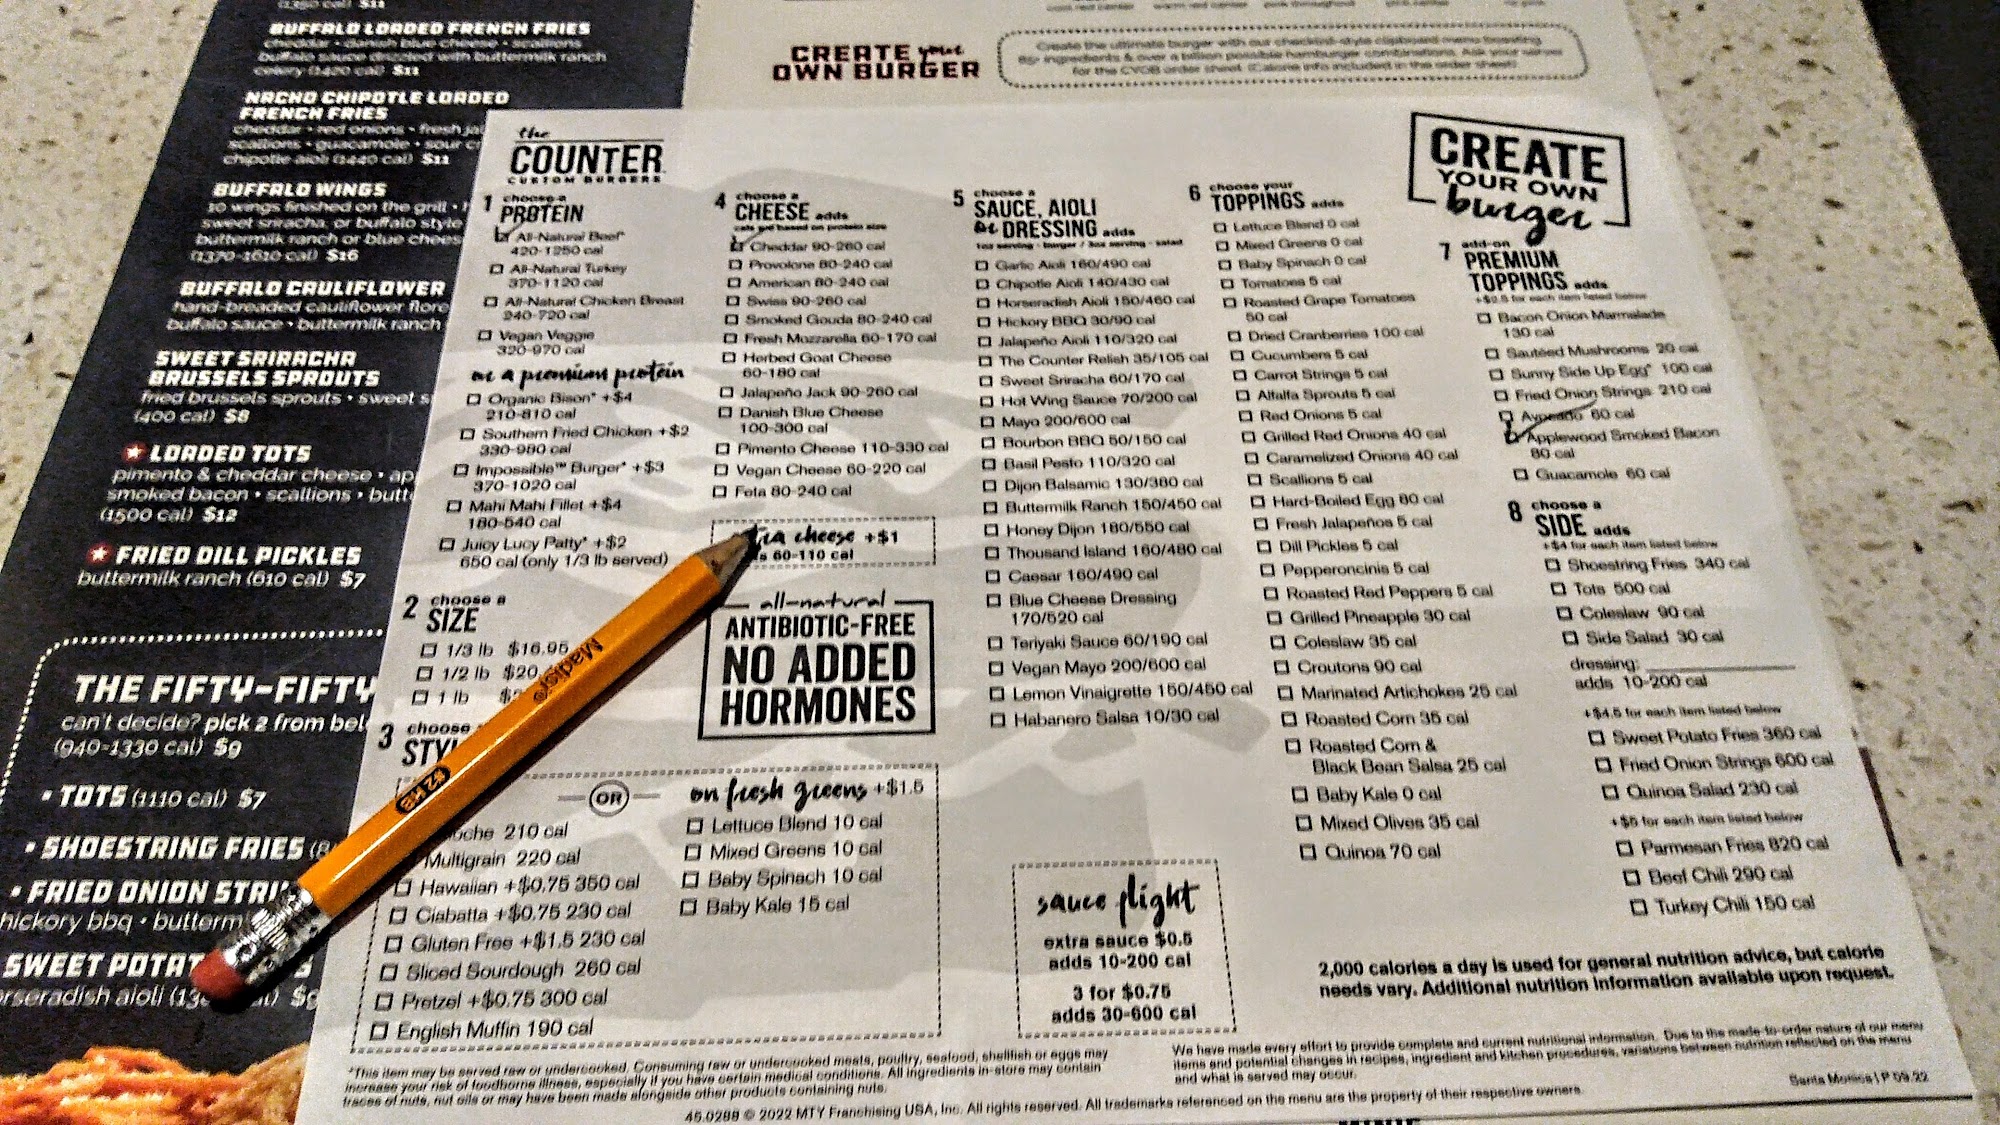 BUFFALO LOADED FRENCH FRIES
cheddar • danish blue cheese • scallions
buffalo sauce drizzled with buttermilk ranch
celery (1420 cal) $11
NACHO CHIPOTLE LOADED
FRENCH FRIES
cheddar • red onions • fresh jal
scallions • guacamole • sour c
chipotle aioli (1440 cal) $11
BUFFALO WINGS
10 wings finished on the grill •
sweet sriracha, or buffalo style
buttermilk ranch or blue chees
(1370-1610 cal) $16
BUFFALO CAULIFLOWER
hand-breaded cauliflower flore
buffalo sauce • buttermilk ranch
SWEET SRIRACHA
BRUSSELS SPROUTS
fried brussels sprouts • sweet s
(400 cal) $8
LOADED TOTS
pimento & cheddar cheese • ap
smoked bacon • scallions • butt
(1500 cal) $12
FRIED DILL PICKLES
buttermilk ranch (610 cal) $7
THE FIFTY-FIFTY
can't decide? pick 2 from bel
(940-1330 cal) $9
• TOTS (1110 cal) $7
• SHOESTRING FRIES
• FRIED ONION STRI
hickory bbq • butterm
SWEET POTAT
CREATE your
OWN BURGER
Create the ultimate burger with our checklist-style clipboard menu boasting
85+ ingredients & over a billion possible hamburger combinations. Ask your server
for the CYOB order sheet. (Calorie info included in the order sheet)
the
COUNTER
CUSTOM BURGERS
CREATE
YOUR OWN
burger
1 choose a
PROTEIN
All-Natural Beef*
420-1250 cal
All-Natural Turkey
370-1120 cal
All-Natural Chicken Breast
240-720 cal
Vegan Veggie
320-970 cal
or a premium protein
Organic Bison* +$4
210-810 cal
Southern Fried Chicken +$2
330-980 cal
Impossible™ Burger* +$3
370-1020 cal
Mahi Mahi Fillet +$4
180-540 cal
Juicy Lucy Patty* +$2
650 cal (only 1/3 lb served)
2 choose a
SIZE
1/3 lb $16.95
1/2 lb $20
1 lb
3 choose
STYL
oche 210 cal
Multigrain 220 cal
Hawaiian +$0.75 350 cal
Ciabatta +$0.75 230 cal
Gluten Free +$1.5 230 cal
Sliced Sourdough 260 cal
Pretzel +$0.75 300 cal
English Muffin 190 cal
OR
on fresh greens +$1.5
Lettuce Blend 10 cal
Mixed Greens 10 cal
Baby Spinach 10 cal
Baby Kale 15 cal
4 choose a
CHEESE adds
cals are based on protein size
Cheddar 90-260 cal
Provolone 80-240 cal
American 80-240 cal
Swiss 90-260 cal
Smoked Gouda 80-240 cal
Fresh Mozzarella 60-170 cal
Herbed Goat Cheese
60-180 cal
Jalapeño Jack 90-260 cal
Danish Blue Cheese
100-300 cal
Pimento Cheese 110-330 cal
Vegan Cheese 60-220 cal
Feta 80-240 cal
tra cheese +$1
s 60-110 cal
all-natural
ANTIBIOTIC-FREE
NO ADDED
HORMONES
Madison
#2 HB
5 choose a
SAUCE, AIOLI
or DRESSING adds
1oz serving - burger / 3oz serving - salad
Garlic Aioli 160/490 cal
Chipotle Aioli 140/430 cal
Horseradish Aioli 150/460 cal
Hickory BBQ 30/90 cal
Jalapeño Aioli 110/320 cal
The Counter Relish 35/105 cal
Sweet Sriracha 60/170 cal
Hot Wing Sauce 70/200 cal
Mayo 200/600 cal
Bourbon BBQ 50/150 cal
Basil Pesto 110/320 cal
Dijon Balsamic 130/380 cal
Buttermilk Ranch 150/450 cal
Honey Dijon 180/550 cal
Thousand Island 160/480 cal
Caesar 160/490 cal
Blue Cheese Dressing
170/520 cal
Teriyaki Sauce 60/190 cal
Vegan Mayo 200/600 cal
Lemon Vinaigrette 150/450 cal
Habanero Salsa 10/30 cal
sauce flight
extra sauce $0.5
adds 10-200 cal
3 for $0.75
adds 30-600 cal
6 choose your
TOPPINGS adds
Lettuce Blend 0 cal
Mixed Greens 0 cal
Baby Spinach 0 cal
Tomatoes 5 cal
Roasted Grape Tomatoes
50 cal
Dried Cranberries 100 cal
Cucumbers 5 cal
Carrot Strings 5 cal
Alfalfa Sprouts 5 cal
Red Onions 5 cal
Grilled Red Onions 40 cal
Caramelized Onions 40 cal
Scallions 5 cal
Hard-Boiled Egg 80 cal
Fresh Jalapeños 5 cal
Dill Pickles 5 cal
Pepperoncinis 5 cal
Roasted Red Peppers 5 cal
Grilled Pineapple 30 cal
Coleslaw 35 cal
Croutons 90 cal
Marinated Artichokes 25 cal
Roasted Corn 35 cal
Roasted Corn &
Black Bean Salsa 25 cal
Baby Kale 0 cal
Mixed Olives 35 cal
Quinoa 70 cal
7 add-on
PREMIUM
TOPPINGS adds
+$2.5 for each item listed below
Bacon Onion Marmalade
130 cal
Sautéed Mushrooms 20 cal
Sunny Side Up Egg* 100 cal
Fried Onion Strings 210 cal
Avocado 60 cal
Applewood Smoked Bacon
80 cal
Guacamole 60 cal
8 choose a
SIDE adds
+$4 for each item listed below
Shoestring Fries 340 cal
Tots 500 cal
Coleslaw 90 cal
Side Salad 30 cal
dressing:
adds 10-200 cal
+$4.5 for each item listed below
Sweet Potato Fries 360 cal
Fried Onion Strings 600 cal
Quinoa Salad 230 cal
+$5 for each item listed below
Parmesan Fries 820 cal
Beef Chili 290 cal
Turkey Chili 150 cal
2,000 calories a day is used for general nutrition advice, but calorie
needs vary. Additional nutrition information available upon request.
*This item may be served raw or undercooked. Consuming raw or undercooked meats, poultry, seafood, shellfish or eggs may
increase your risk of foodborne illness, especially if you have certain medical conditions. All ingredients in-store may contain
traces of nuts, nut oils or may have been made alongside other products containing nuts.
We have made every effort to provide complete and current nutritional information. Due to the made-to-order nature of our menu
items and potential changes in recipes, ingredient and kitchen procedures, variations between nutrition reflected on the menu
and what is served may occur.
Santa Monica | P 09.22
45.0288 © 2022 MTY Franchising USA, Inc. All rights reserved. All trademarks referenced on the menu are the property of their respective owners.